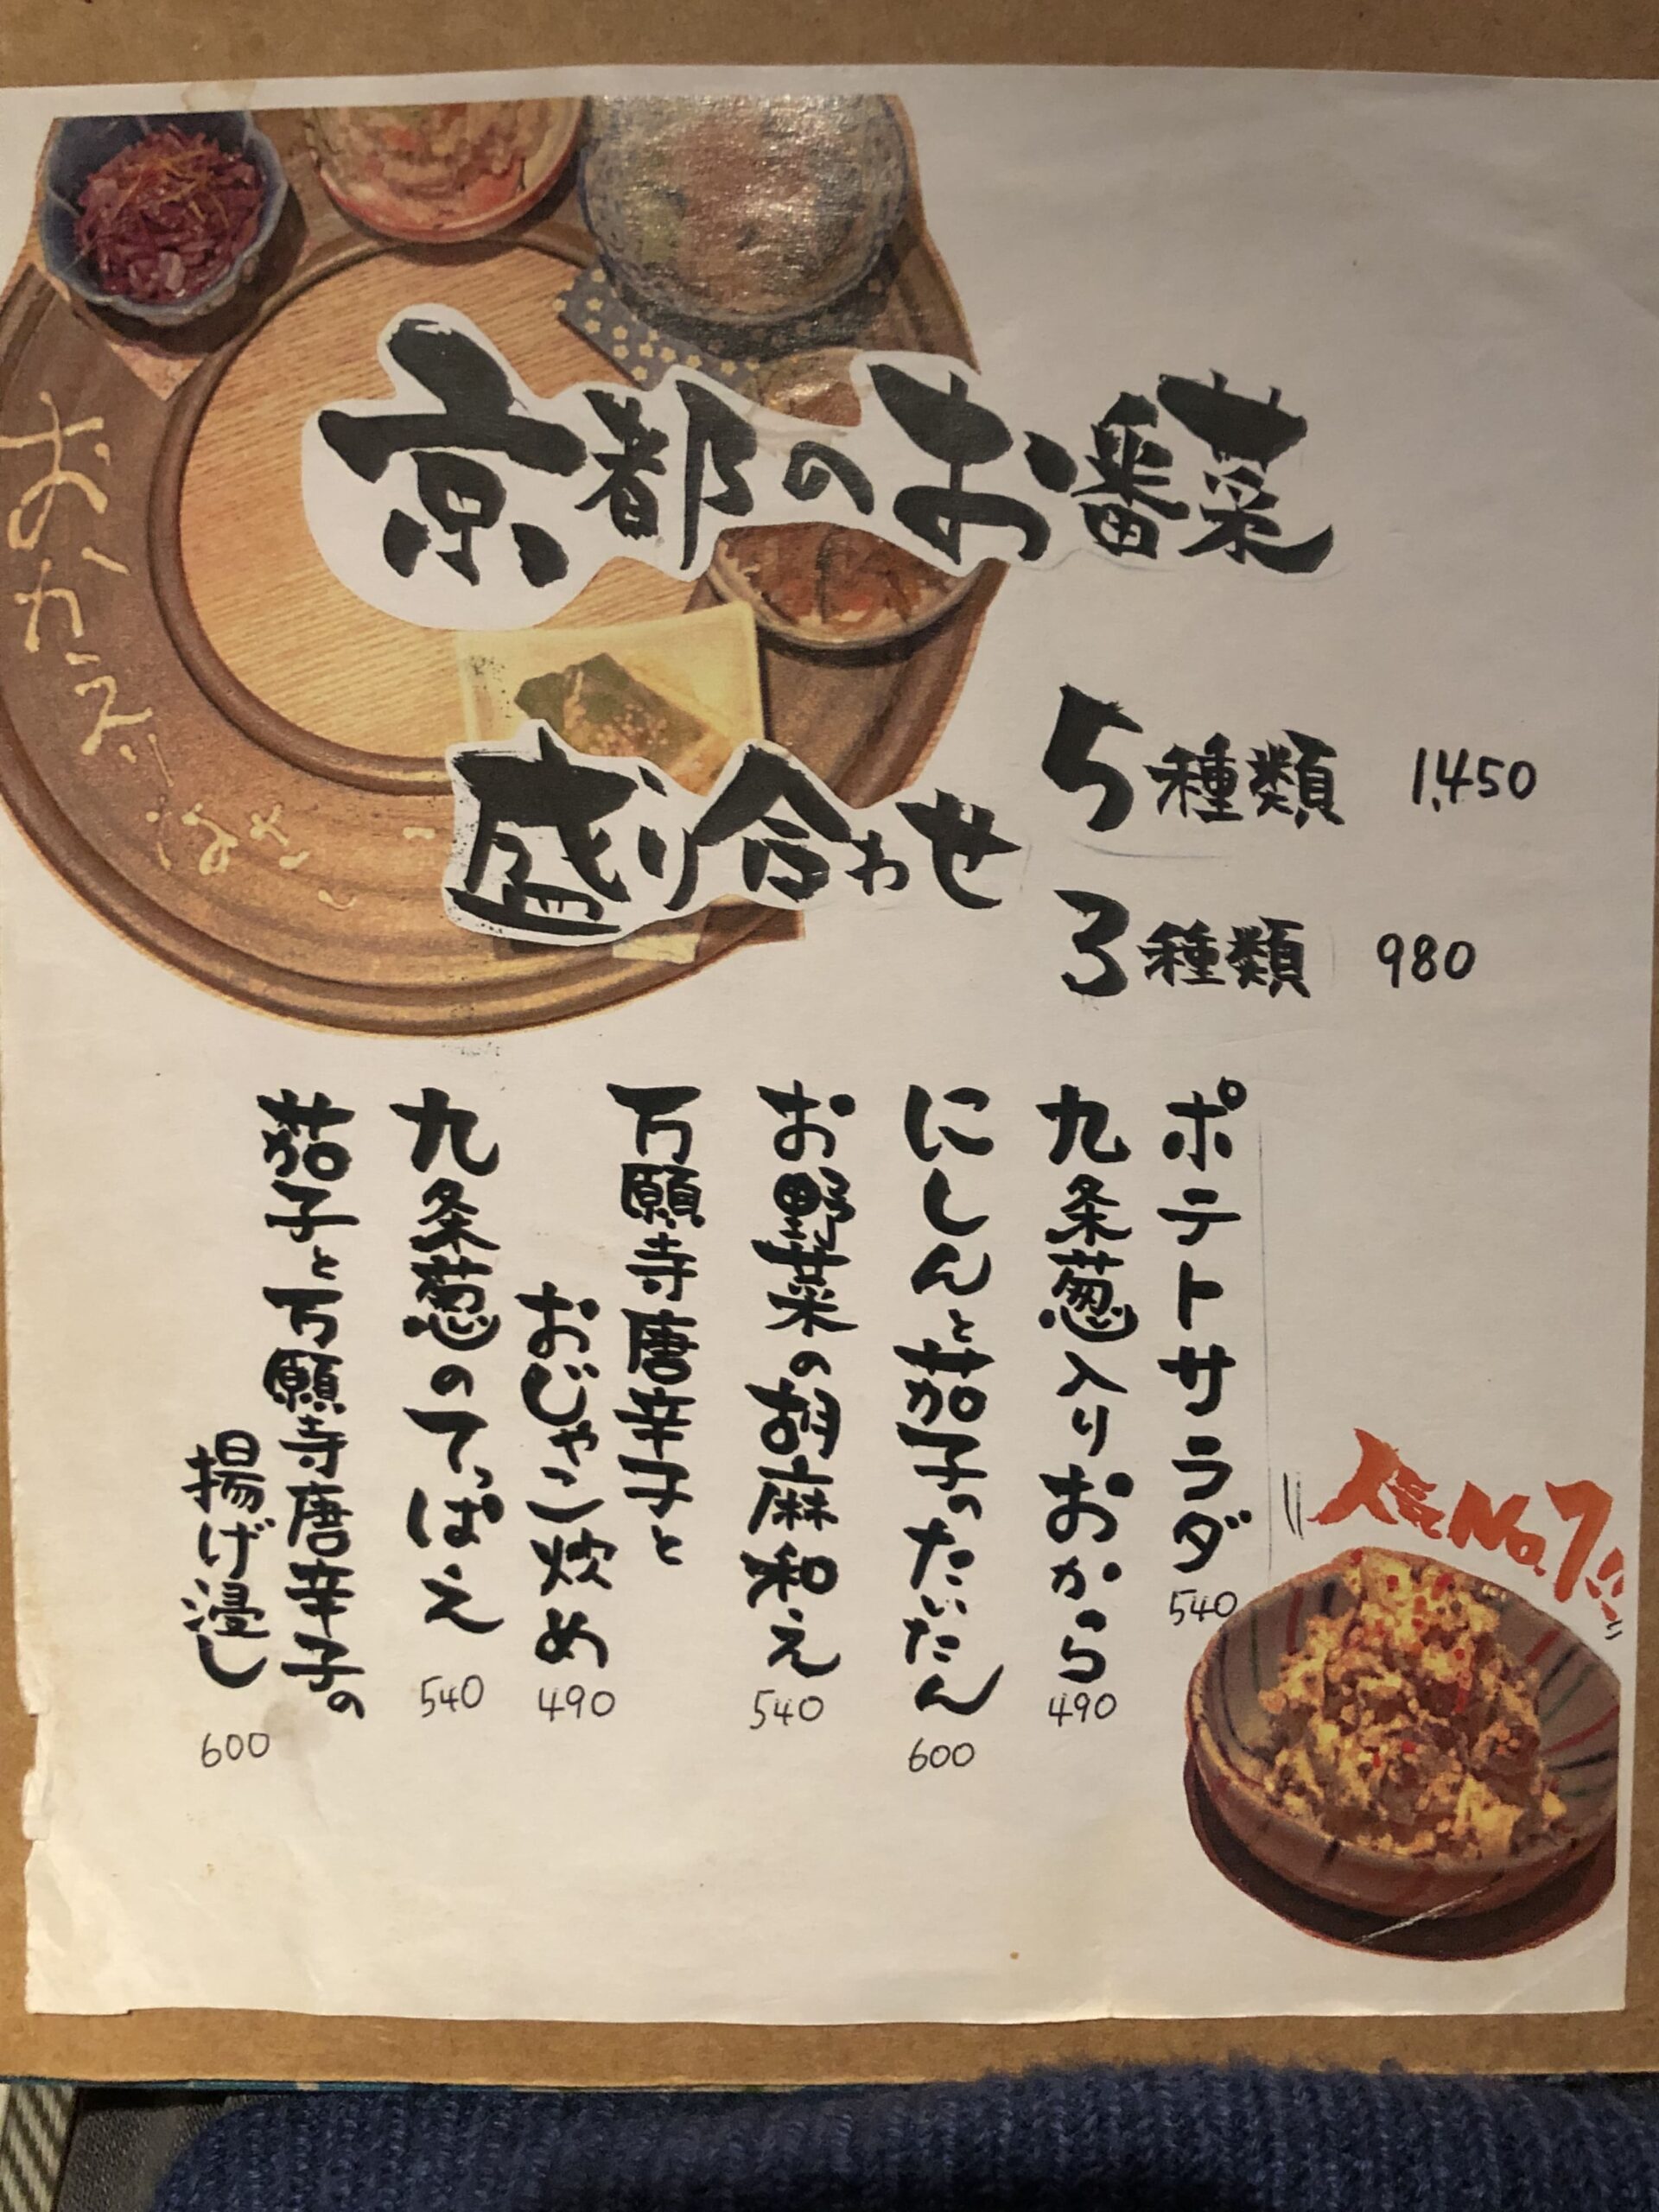 京都のお番菜
盛り合わせ
5種類 1,450
3種類 980
人気No.1!!
ポテトサラダ 540
九条葱入りおから 490
にしんと茄子のたいたん 600
お野菜の胡麻和え 540
万願寺唐辛子と
おじゃこ炒め 490
九条葱のてっぱえ 540
茄子と万願寺唐辛子の
揚げ浸し 600